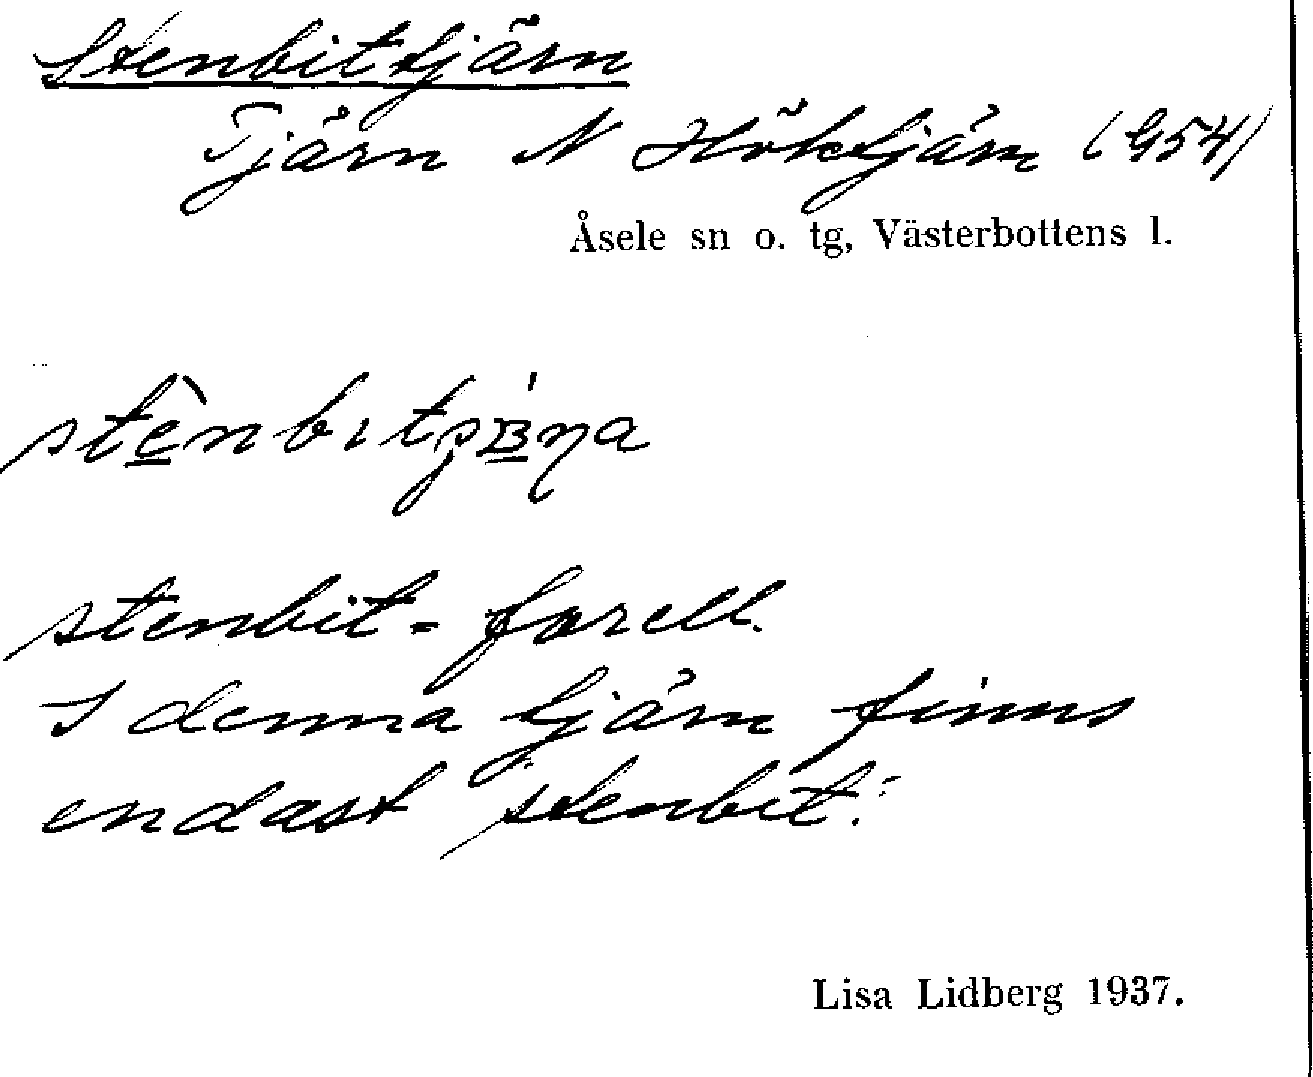 Stenbittjärn
Tjärn N Höktjärn (954)
Åsele sn o. tg, Västerbottens l.
stenbit = forell.
I denna tjärn finns
endast "stenbit".
Lisa Lidberg 1937.